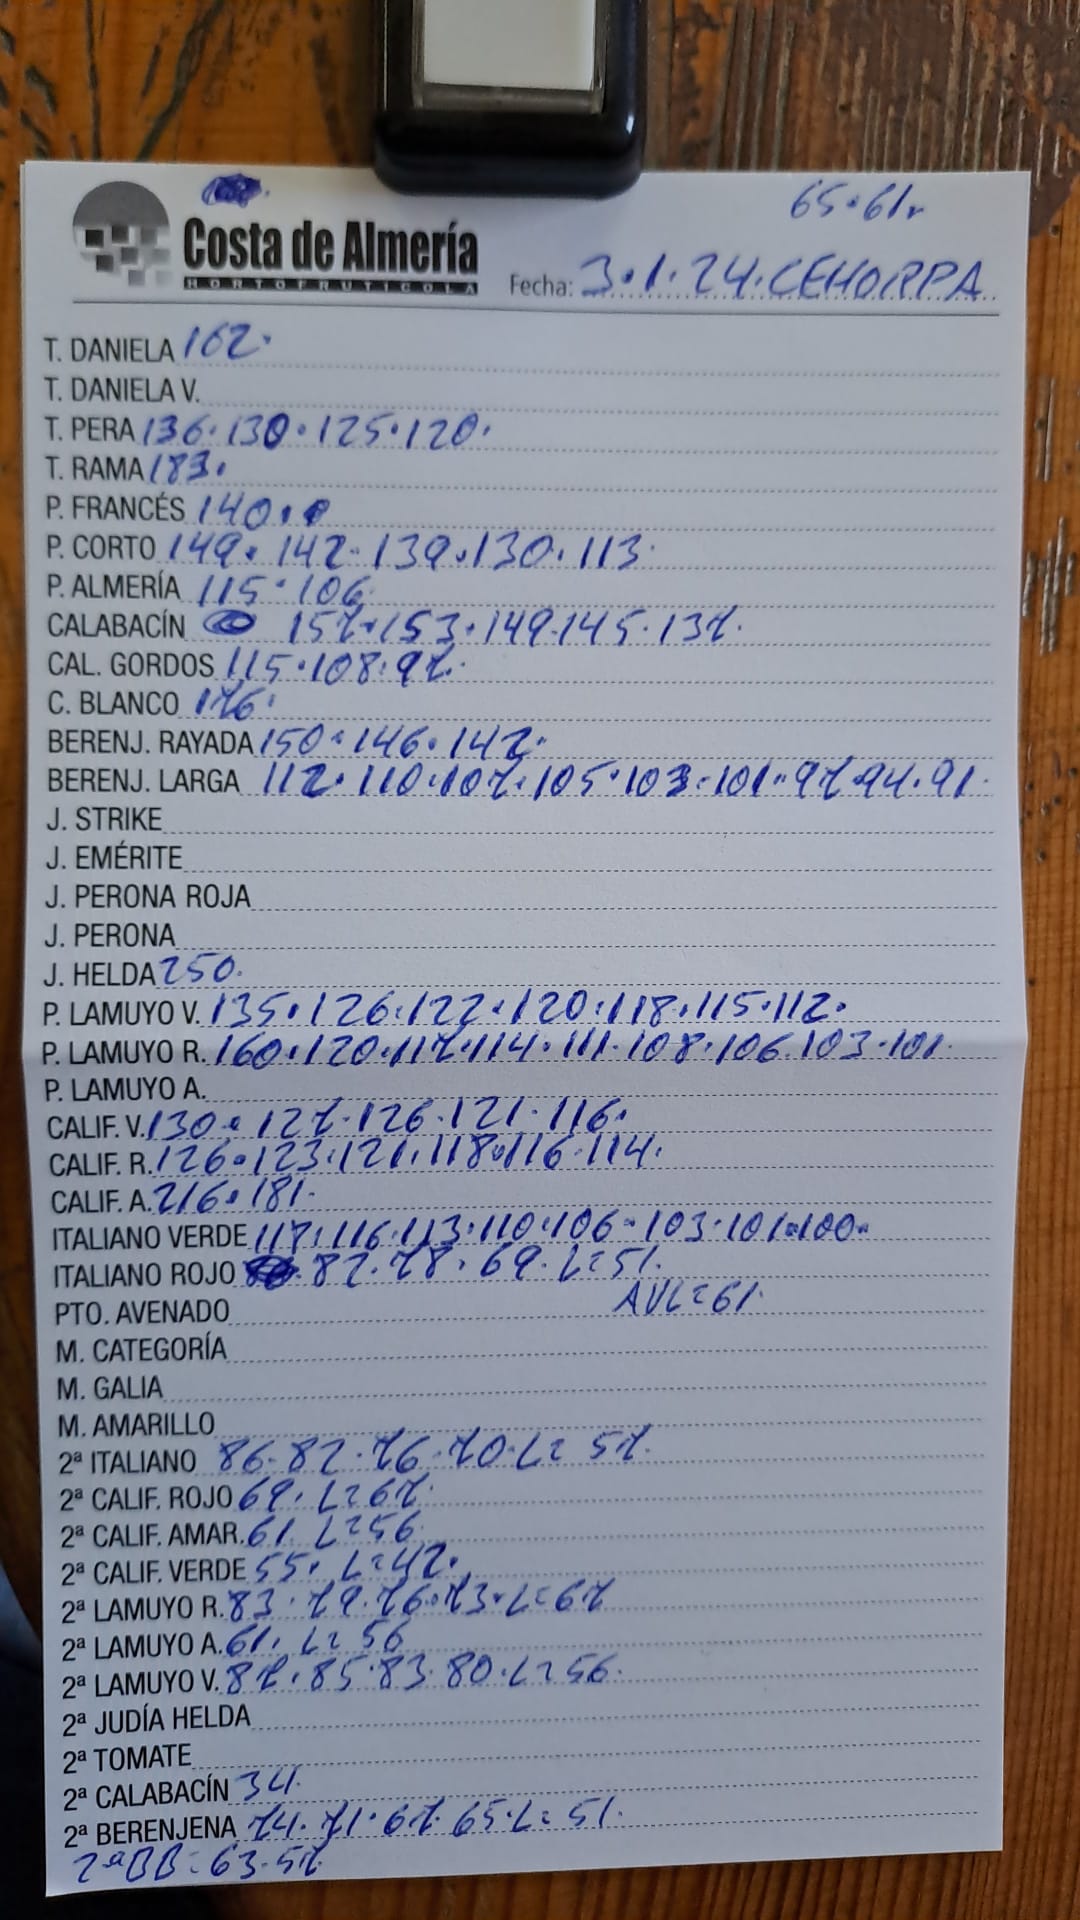 65.61.
Costa de Almería
HORTOFRUTICOLA
Fecha: 3.1.24.CEHORPA
T. DANIELA 162.
T. DANIELA V.
T. PERA 136.130.125.120.
T. RAMA 183.
P. FRANCÉS 140.
P. CORTO 149.142.139.130.113.
P. ALMERÍA 115.106.
CALABACÍN 157.153.149.145.137.
CAL. GORDOS 115.108.97.
C. BLANCO 176.
BERENJ. RAYADA 150.146.142.
BERENJ. LARGA 112.110.107.105.103.101.97.94.91.
J. STRIKE
J. EMÉRITE
J. PERONA ROJA
J. PERONA
J. HELDA 250.
P. LAMUYO V. 135.126.122.120.118.115.112.
P. LAMUYO R. 160.120.117.114.111.108.106.103.101.
P. LAMUYO A.
CALIF. V. 130.127.126.121.116.
CALIF. R. 126.123.121.118.116.114.
CALIF. A. 216.181.
ITALIANO VERDE 117.116.113.110.106.103.101.100.
ITALIANO ROJO 82.78.69.L=51.
AVL=61.
PTO. AVENADO
M. CATEGORÍA
M. GALIA
M. AMARILLO
2ª ITALIANO 86.82.76.70.L=57.
2ª CALIF. ROJO 69.L=67.
2ª CALIF. AMAR. 61.L=56.
2ª CALIF. VERDE 55.L=42.
2ª LAMUYO R. 83.79.76.73.L=67
2ª LAMUYO A. 61.L=56
2ª LAMUYO V. 87.85.83.80.L=56.
2ª JUDÍA HELDA
2ª TOMATE
2ª CALABACÍN 34.
2ª BERENJENA 74.71.67.65.L=51.
2ªBB=63.57.